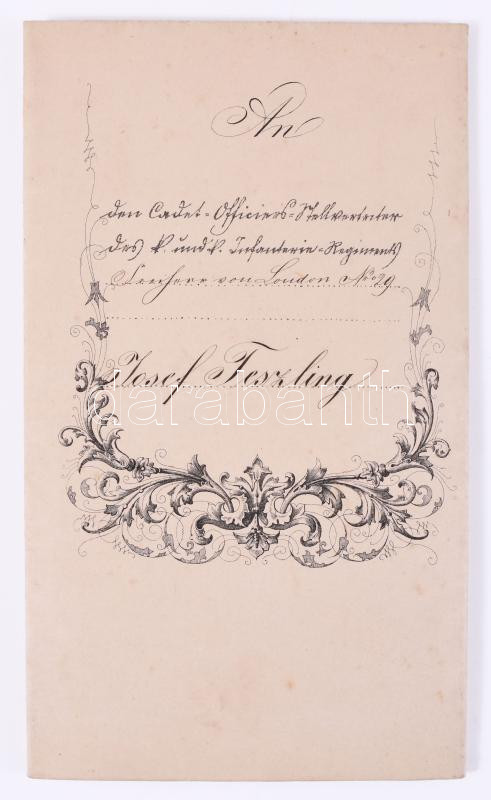 An
den Cadet-Officiers-Stellvertreter
des k. und k. Infanterie-Regiments
Freiherr von Loudon No 29
Josef Feszling
darabanth